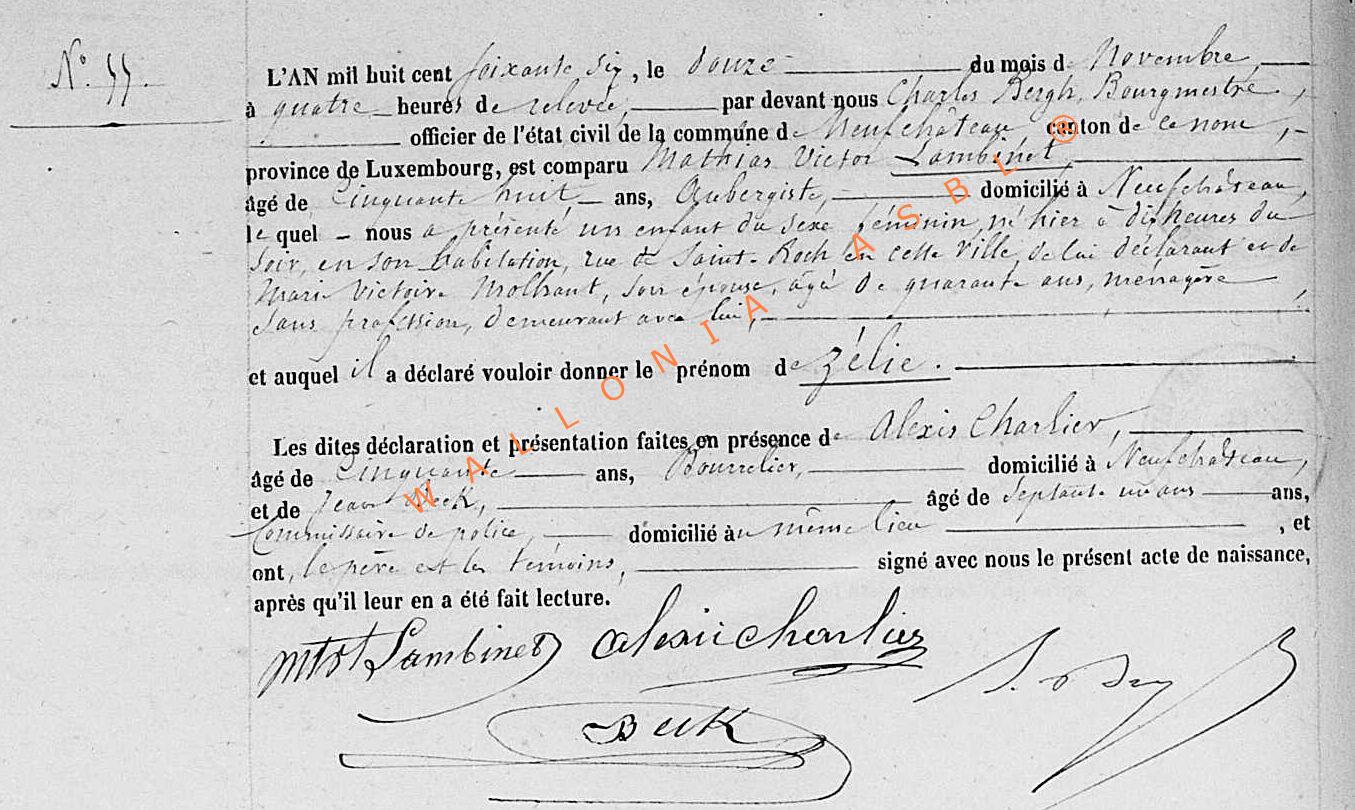 N° 55.
L'AN mil huit cent soixante six, le douze du mois de Novembre,
à quatre heures de relevée, par devant nous Charles Bergh, Bourgmestre,
officier de l'état civil de la commune de Neufchâteau, canton de ce nom,
province de Luxembourg, est comparu Mathias Victor Lambinet,
âgé de Cinquante huit ans, Aubergiste, domicilié à Neufchâteau,
le quel nous a présenté un enfant du sexe féminin, né hier à dix heures du
soir, en son habitation, rue de Saint-Roch en cette Ville, de lui déclarant et de
Marie Victoire, son épouse, âgée de quarante ans, ménagère
sans profession, demeurant avec lui,
et auquel il a déclaré vouloir donner le prénom de Zélie.
Les dites déclaration et présentation faites en présence de Alexis Charlier,
âgé de Cinquante ans, Bourrelier, domicilié à Neufchâteau,
et de Jean Beck, âgé de septante un ans ans,
Commissaire de police, domicilié au même lieu, et
ont, le père et les témoins, signé avec nous le présent acte de naissance,
après qu'il leur en a été fait lecture.
Lambinet Alexis Charlier
Beck
WALLONIA ASBL ®